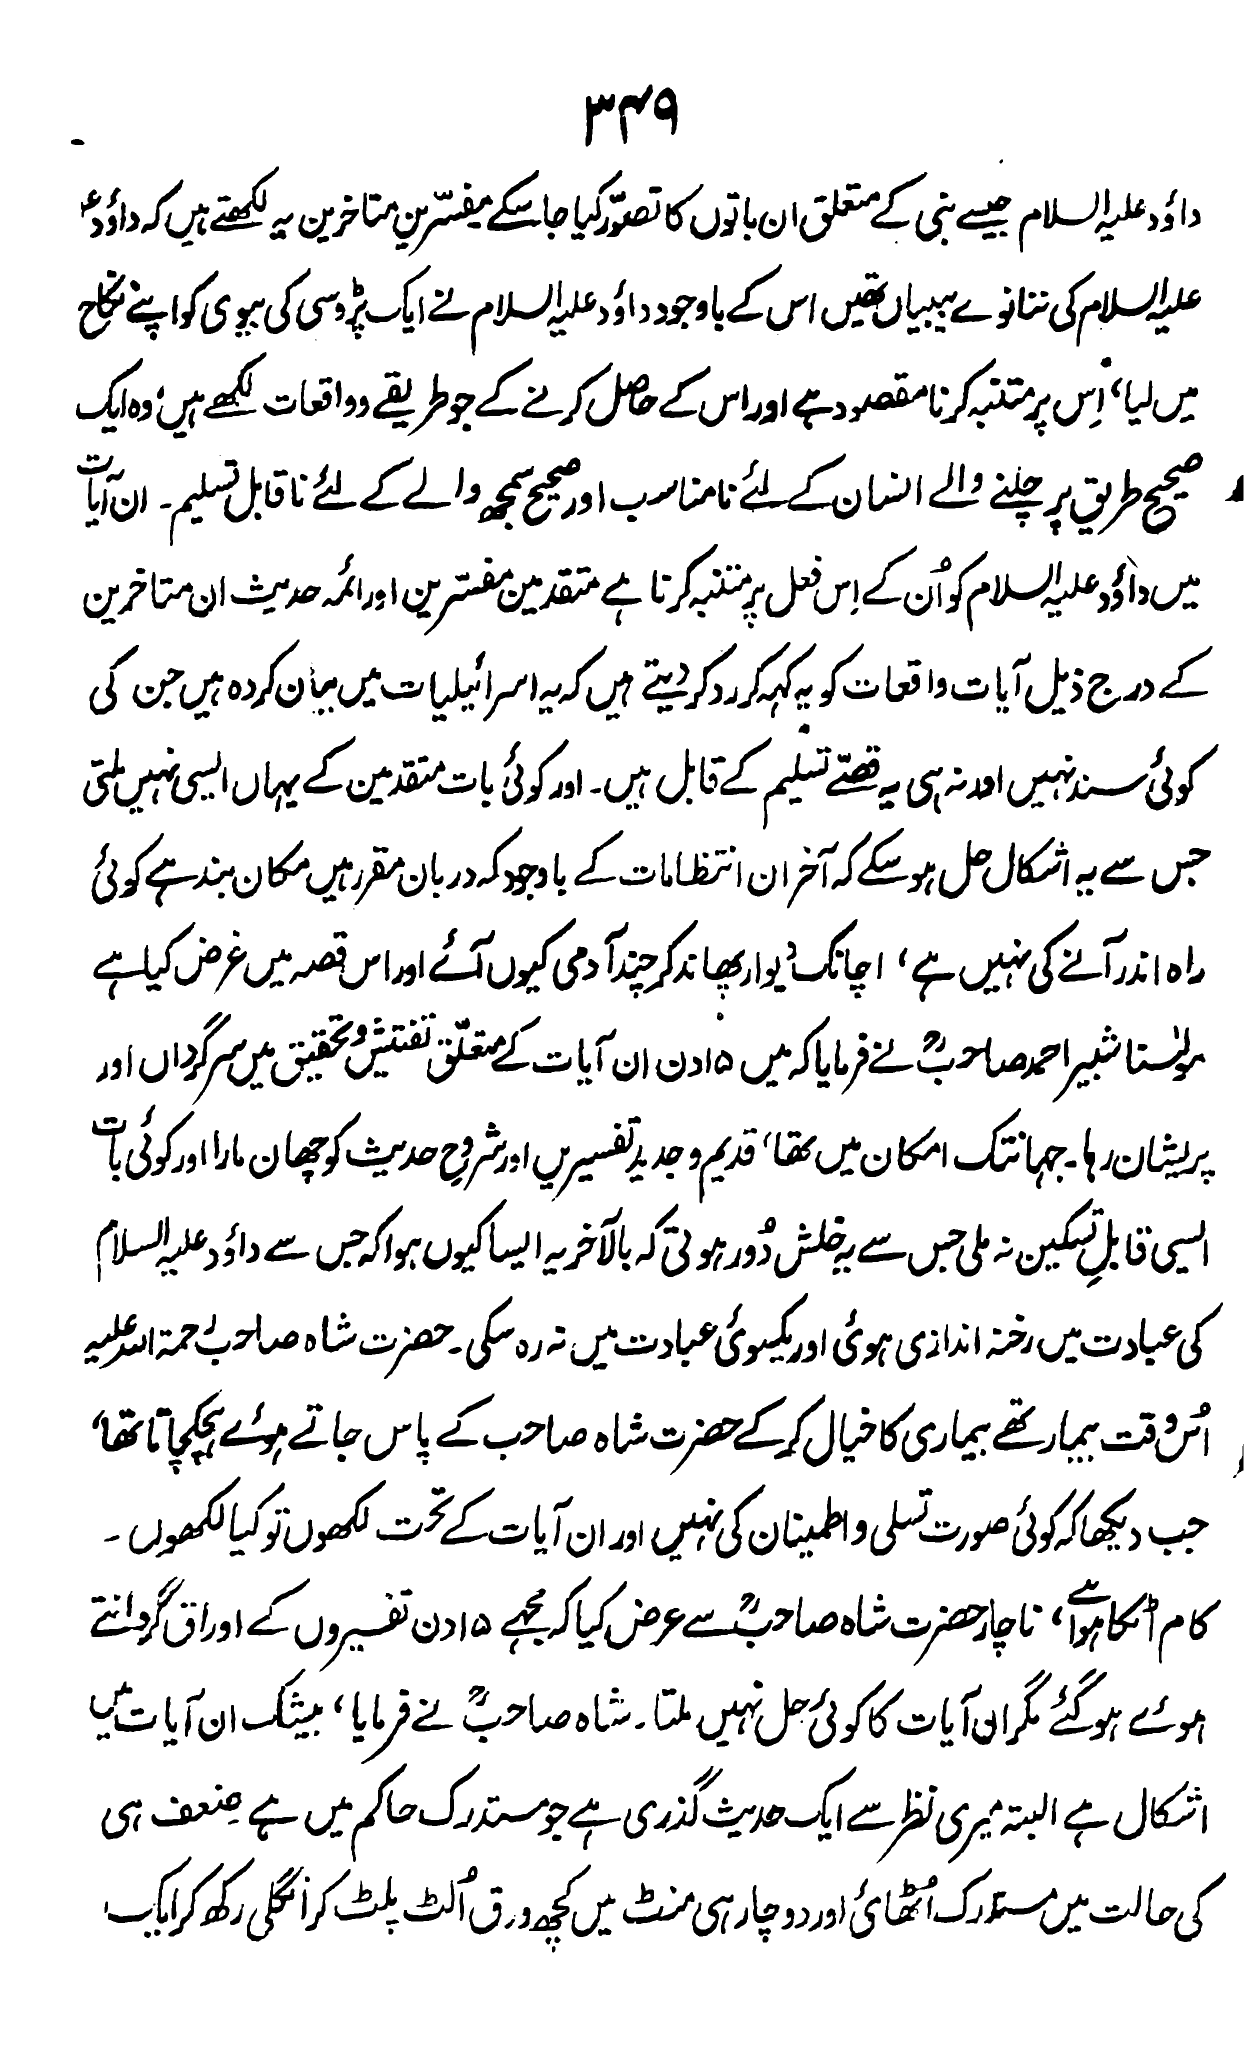 ۳۴۹
داؤد علیہ السلام جیسے نبی کے متعلق ان باتوں کا تصوّر کیا جا سکے مفسّرین متاخرین یہ لکھتے ہیں کہ داؤدؑ
علیہ السلام کی ننانوے بیبیاں تھیں اس کے باوجود داؤد علیہ السلام نے ایک پڑوسی کی بیوی کو اپنے نکاح
میں لیا، اِس پر متنبہ کرنا مقصود ہے اور اس کے حاصل کرنے کے جو طریقے و واقعات لکھے ہیں، وہ ایک
صحیح طریق پر چلنے والے انسان کے لئے نامناسب اور صحیح سمجھ والے کے لئے ناقابل تسلیم۔ ان آیات
میں داؤد علیہ السلام کو اُن کے اِس فعل پر متنبہ کرنا ہے متقدمین مفسّرین اور ائمہ حدیث ان متاخرین
کے درج ذیل آیات واقعات کو یہ کہہ کر رد کر دیتے ہیں کہ یہ اسرائیلیات میں بیان کردہ ہیں جن کی
کوئی سند نہیں اور نہ ہی یہ قصّے تسلیم کے قابل ہیں۔ اور کوئی بات متقدمین کے یہاں ایسی نہیں ملتی
جس سے یہ اشکال حل ہو سکے کہ آخر ان انتظامات کے باوجود کہ دربان مقرر ہیں مکان بند ہے کوئی
راہ اندر آنے کی نہیں ہے، اچانک دیوار پھاند کر چند آدمی کیوں آئے اور اس قصہ میں غرض کیا ہے
مولٰینا شبیر احمد صاحبؒ نے فرمایا کہ میں ۱۵ دن ان آیات کے متعلّق تفتیش و تحقیق میں سرگرداں اور
پریشان رہا۔ جہانتک امکان میں تھا، قدیم و جدید تفسیریں اور شروحِ حدیث کو چھان مارا اور کوئی بات
ایسی قابلِ تسکین نہ ملی جس سے یہ خلش دُور ہوتی کہ بالآخر یہ ایسا کیوں ہوا کہ جس سے داؤد علیہ السلام
کی عبادت میں رخنہ اندازی ہوئی اور یکسوئی عبادت میں نہ رہ سکی۔ حضرت شاہ صاحب رحمۃ اللہ علیہ
اُس وقت بیمار تھے بیماری کا خیال کر کے حضرت شاہ صاحب کے پاس جاتے ہوئے ہچکچاتا تھا،
جب دیکھا کہ کوئی صورت تسلی و اطمینان کی نہیں اور ان آیات کے تحت لکھوں تو کیا لکھوں۔
کام اٹکا ہوا ہے، ناچار حضرت شاہ صاحبؒ سے عرض کیا کہ مجھے ۱۵ دن تفسیروں کے اوراق گردانتے
ہوئے ہو گئے مگر ان آیات کا کوئی حل نہیں ملتا۔ شاہ صاحبؒ نے فرمایا، بیشک ان آیات میں
اشکال ہے البتہ میری نظر سے ایک حدیث گذری ہے جو مستدرک حاکم میں ہے ضعف ہی
کی حالت میں مستدرک اُٹھائی اور دو چار ہی منٹ میں کچھ ورق اُلٹ پلٹ کر انگلی رکھ کر ایک